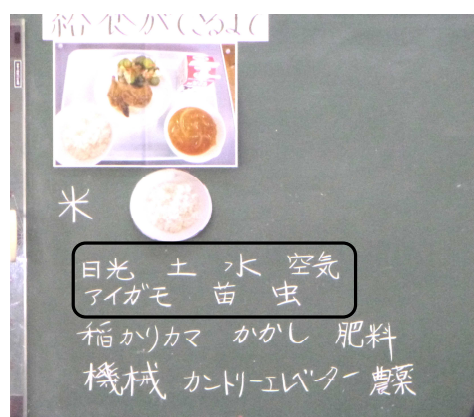 給食ができるまで
米
日光 土 水 空気
アイガモ 苗 虫
稲かりカマ かかし 肥料
機械 カントリーエレベーター 農薬